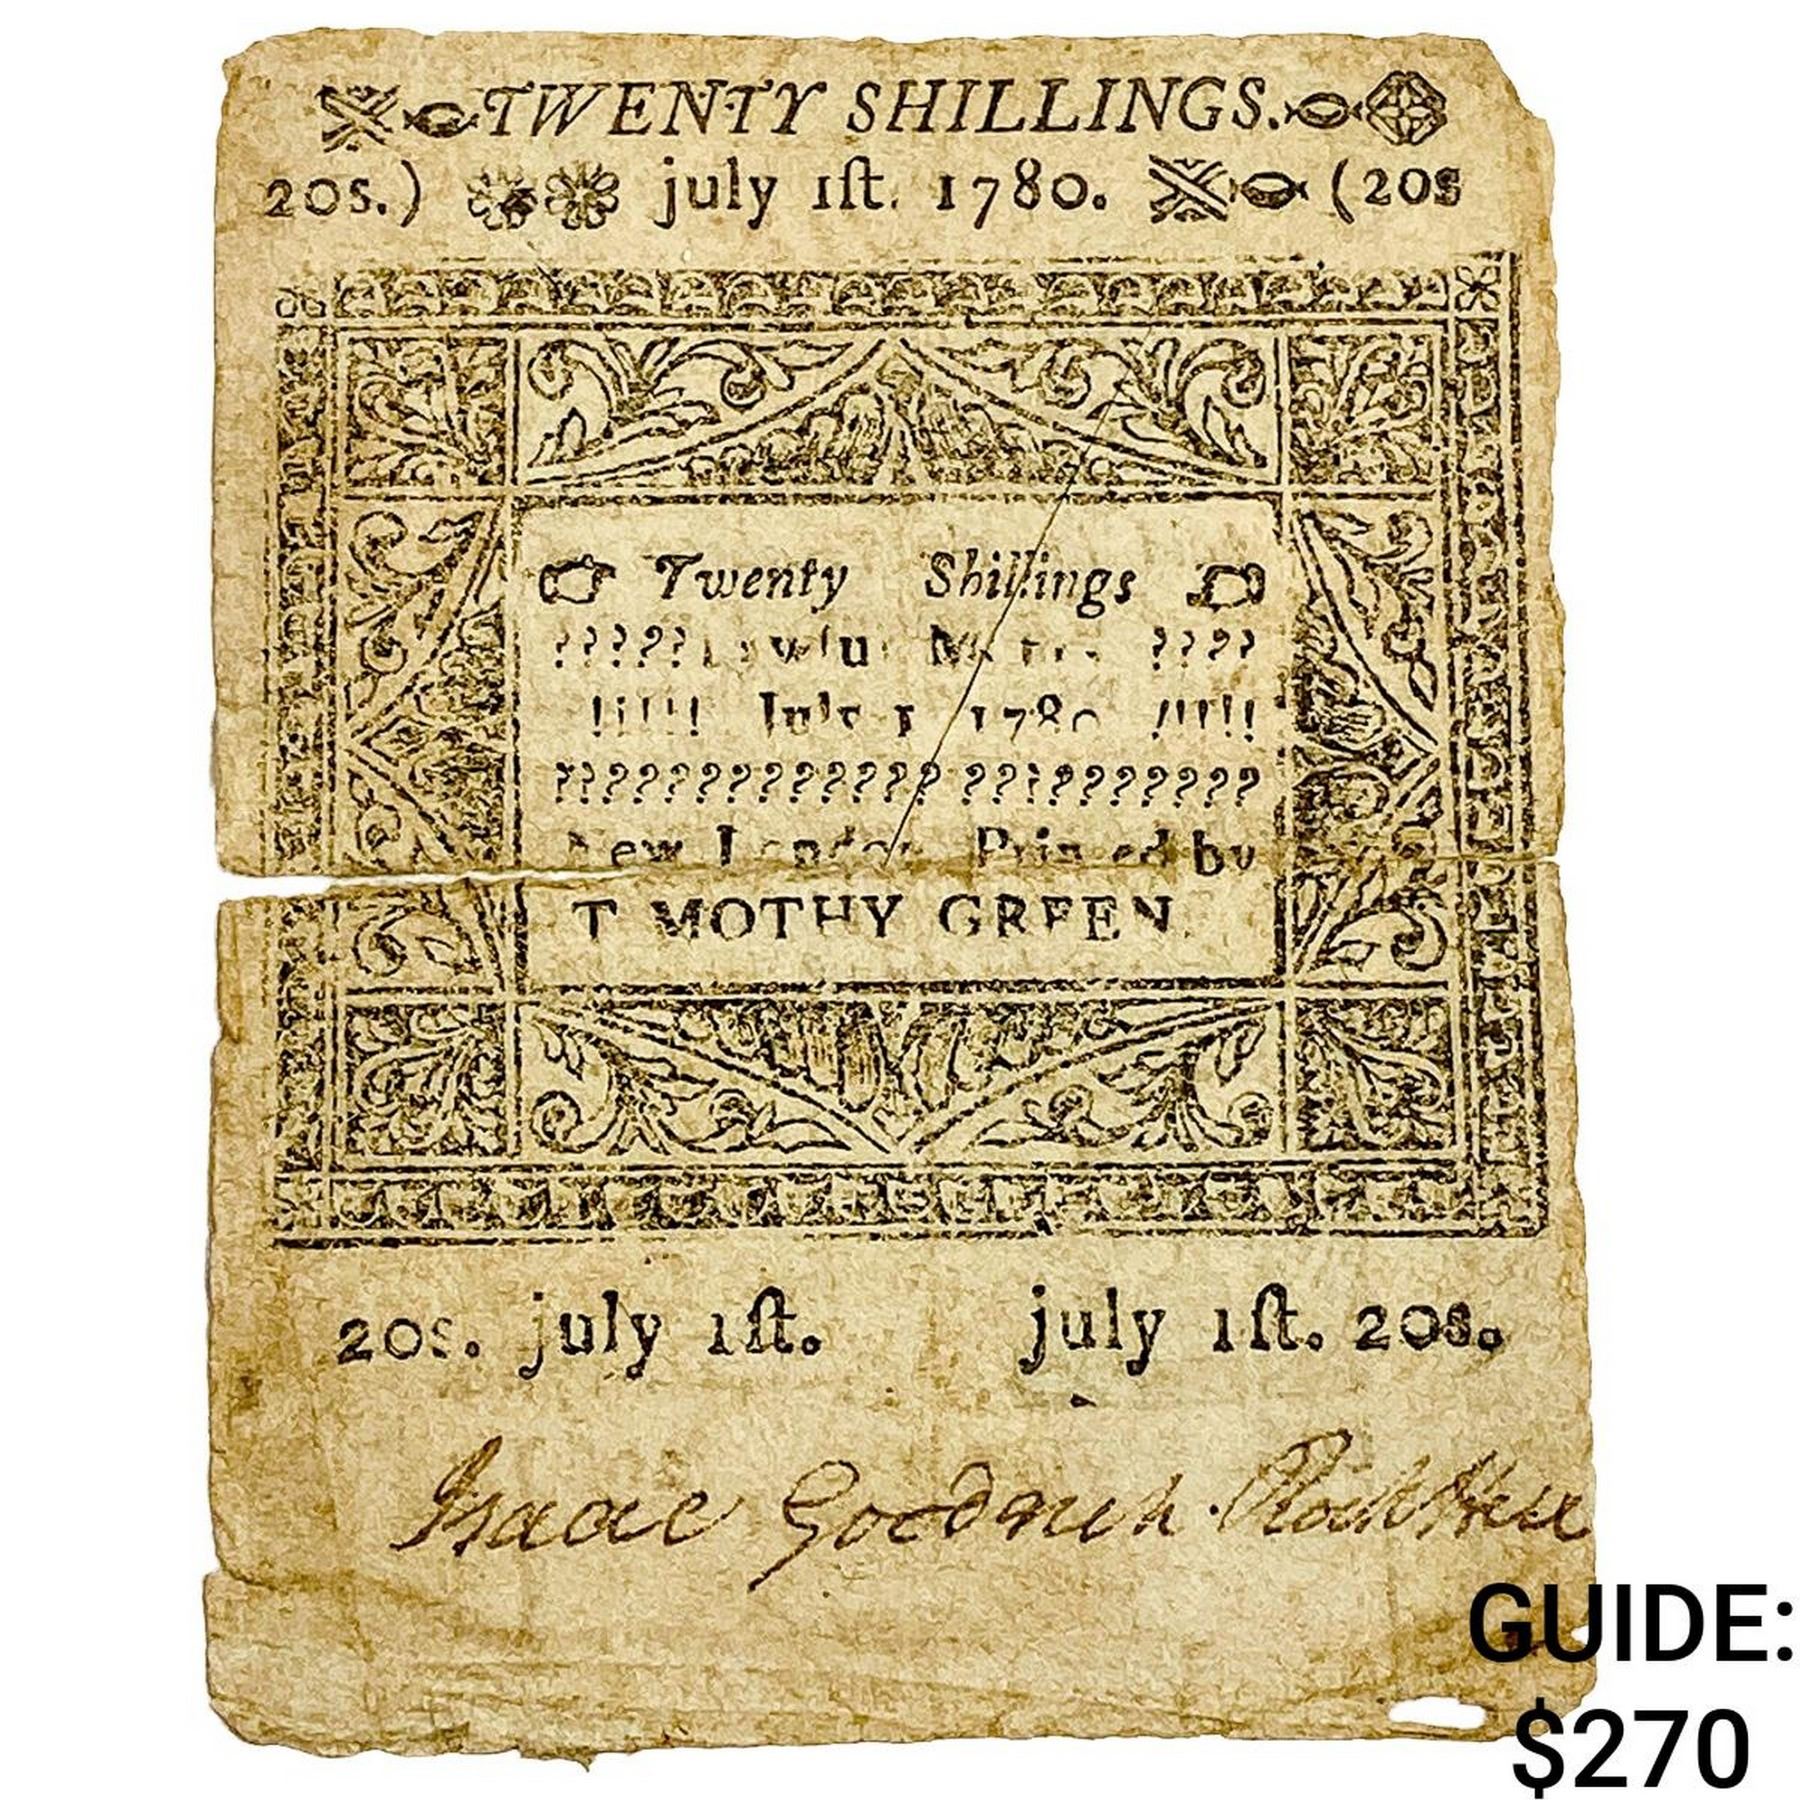 TWENTY SHILLINGS.
20s.) july 1ſt. 1780. (20s
Twenty Shillings
????? ????
!!!!! July 1 1780 !!!!!
????????????? ??????????
New London Printed by
T MOTHY GREEN
20s. july 1ſt. july 1ſt. 20s.
Isaac Goodrich
GUIDE:
$270